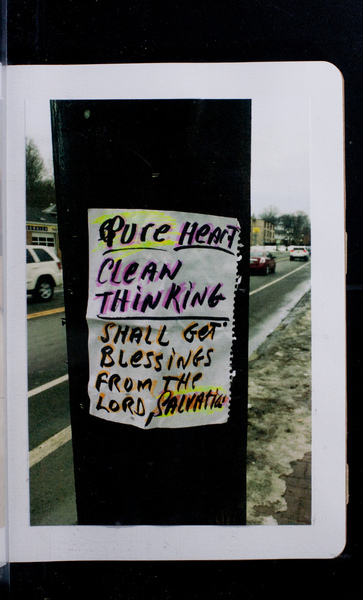 Pure Heart
Clean
Thinking
Shall Get
Blessings
From The
Lord, Salvation